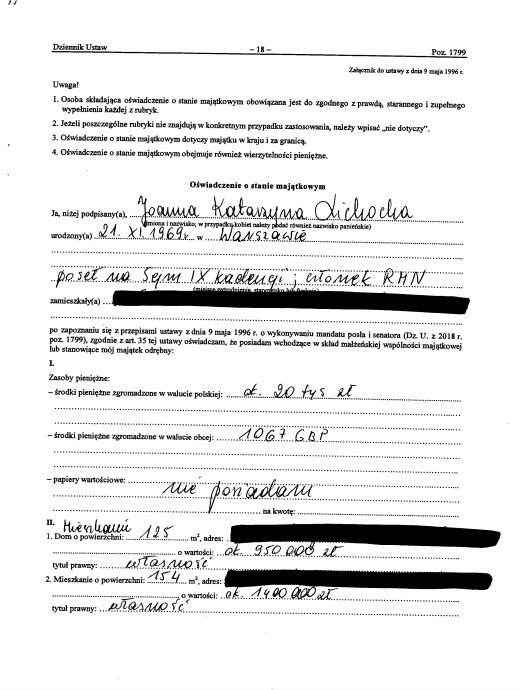 Dziennik Ustaw – 18 – Poz. 1799
Załącznik do ustawy z dnia 9 maja 1996 r.
Uwaga!
1. Osoba składająca oświadczenie o stanie majątkowym obowiązana jest do zgodnego z prawdą, starannego i zupełnego
wypełnienia każdej z rubryk.
2. Jeżeli poszczególne rubryki nie znajdują w konkretnym przypadku zastosowania, należy wpisać „nie dotyczy”.
3. Oświadczenie o stanie majątkowym dotyczy majątku w kraju i za granicą.
4. Oświadczenie o stanie majątkowym obejmuje również wierzytelności pieniężne.
Oświadczenie o stanie majątkowym
Ja, niżej podpisany(a), Joanna Katarzyna Lichocka
(imiona i nazwisko; w przypadku kobiet należy podać również nazwisko panieńskie)
urodzony(a) 21. XI. 1969r. w Warszawie
poseł na Sejm IX kadencji; członek RMN
(miejsce zatrudnienia, stanowisko lub funkcja)
zamieszkały(a)
po zapoznaniu się z przepisami ustawy z dnia 9 maja 1996 r. o wykonywaniu mandatu posła i senatora (Dz. U. z 2018 r.
poz. 1799), zgodnie z art. 35 tej ustawy oświadczam, że posiadam wchodzące w skład małżeńskiej wspólności majątkowej
lub stanowiące mój majątek odrębny:
I.
Zasoby pieniężne:
– środki pieniężne zgromadzone w walucie polskiej: ok. 20 tys zł
– środki pieniężne zgromadzone w walucie obcej: 1067 GBP
– papiery wartościowe: nie posiadam
na kwotę:
II. Mieszkanie
1. Dom o powierzchni: 125 m², adres:
o wartości: ok. 950 000 zł
tytuł prawny: własność
2. Mieszkanie o powierzchni: 154 m², adres:
o wartości: ok. 1400 000 zł
tytuł prawny: własność